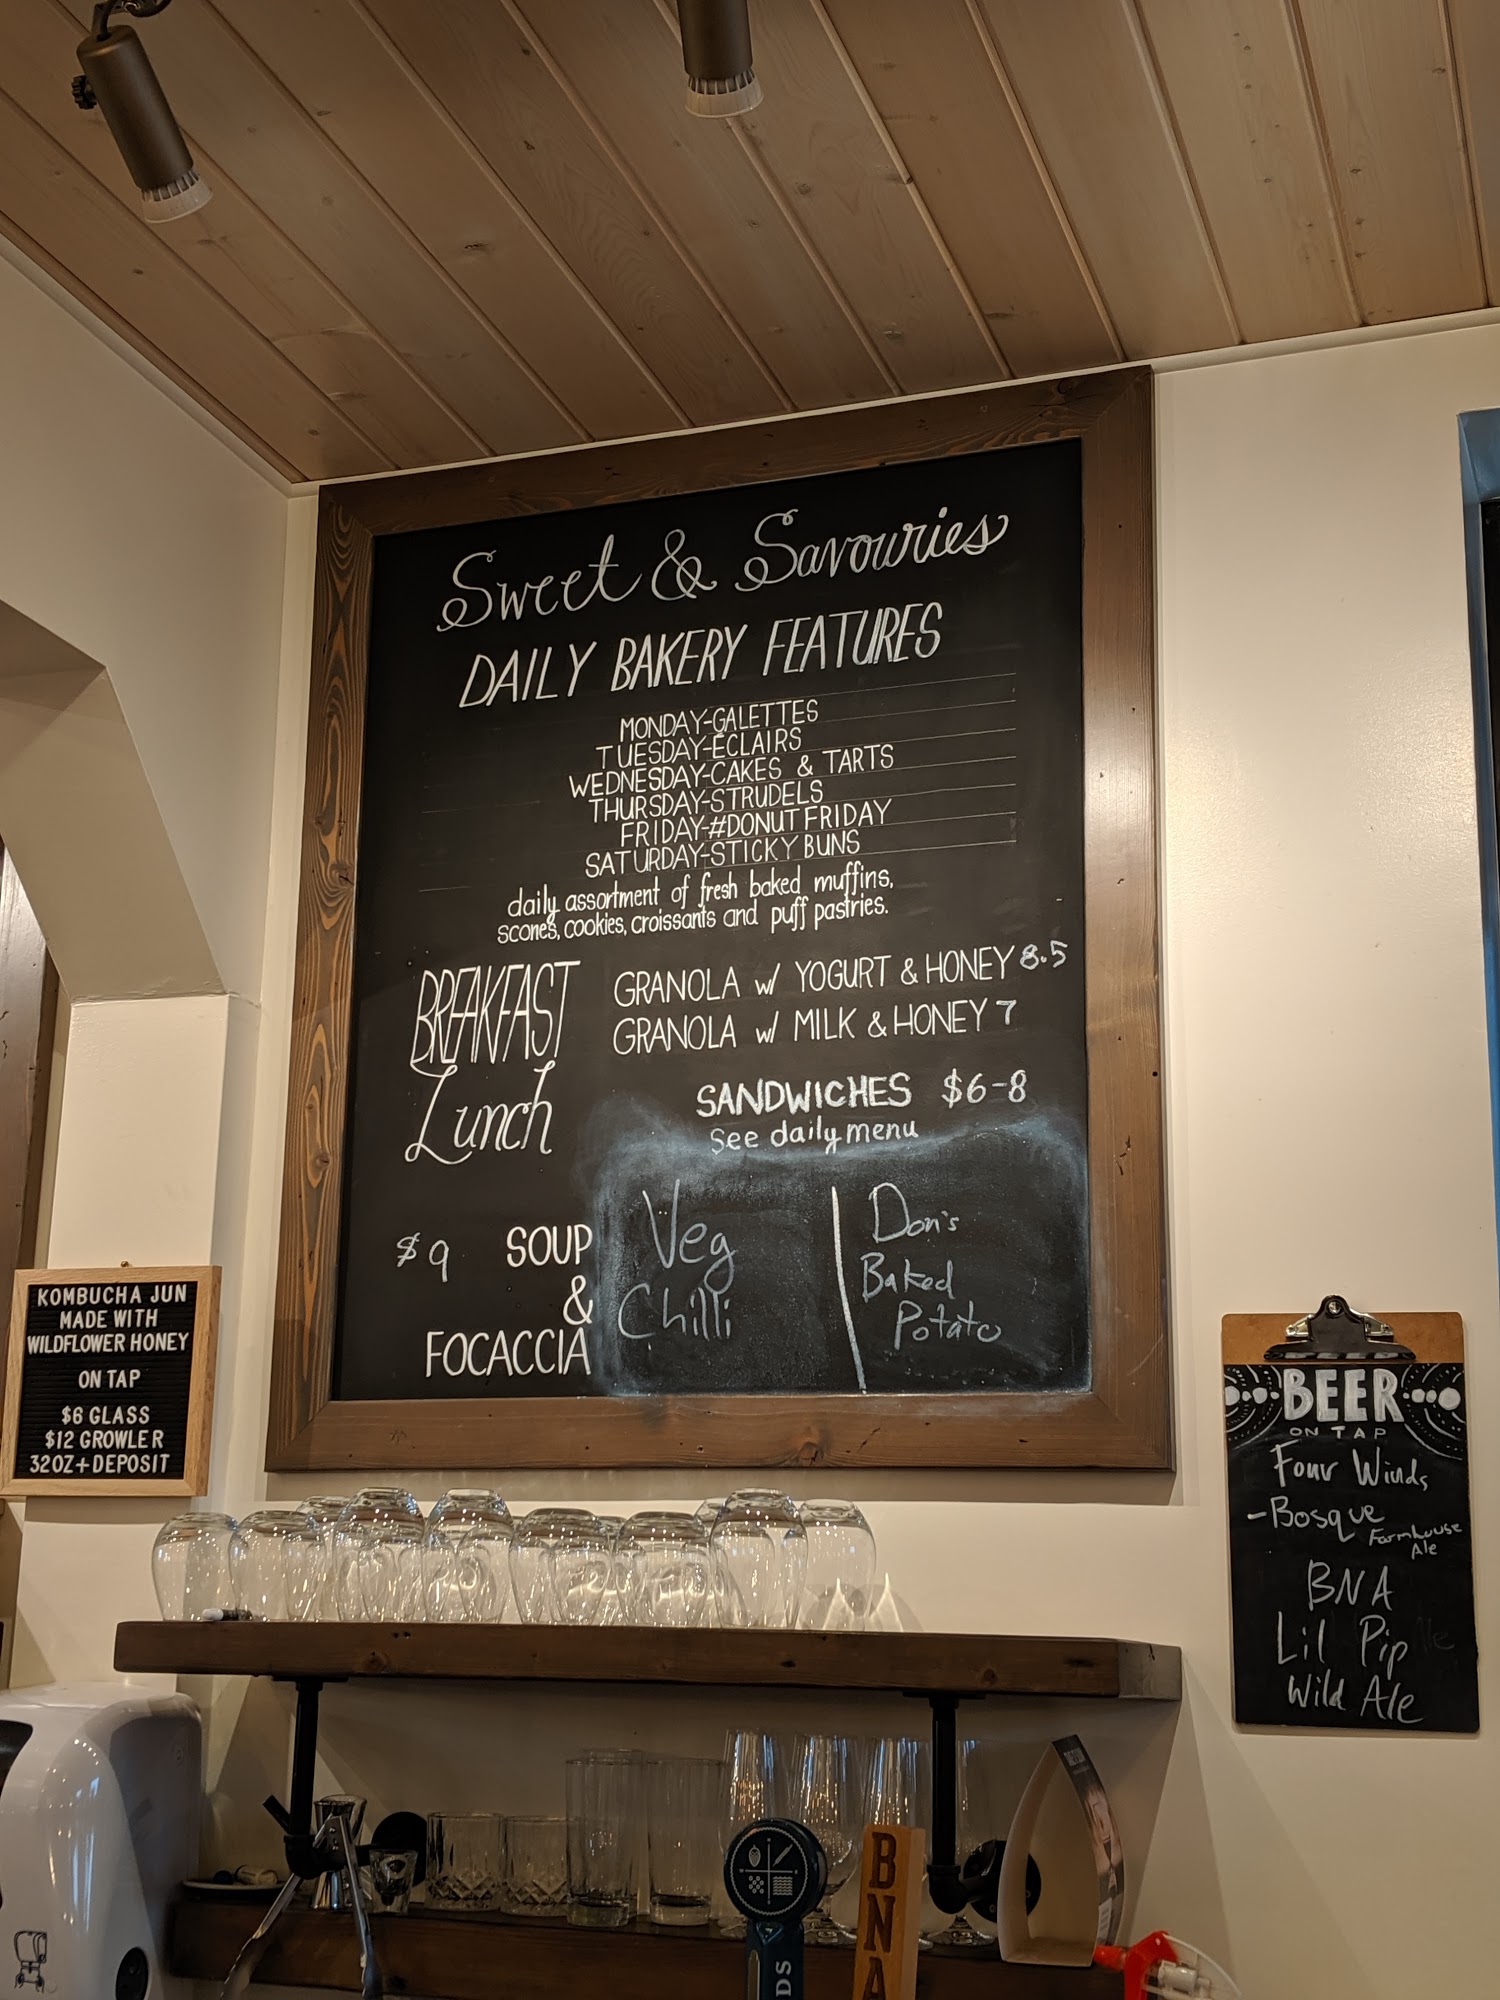 Sweet & Savouries
DAILY BAKERY FEATURES
MONDAY-GALETTES
TUESDAY-ÉCLAIRS
WEDNESDAY-CAKES & TARTS
THURSDAY-STRUDELS
FRIDAY-#DONUTFRIDAY
SATURDAY-STICKY BUNS
daily assortment of fresh baked muffins,
scones, cookies, croissants and puff pastries.
BREAKFAST
GRANOLA w/ YOGURT & HONEY 8.5
GRANOLA w/ MILK & HONEY 7
Lunch
SANDWICHES $6-8
see daily menu
$9 SOUP
&
FOCACCIA
Veg
Chilli
Don's
Baked
Potato
KOMBUCHA JUN
MADE WITH
WILDFLOWER HONEY
ON TAP
$6 GLASS
$12 GROWLER
32OZ+DEPOSIT
BEER
ON TAP
Four Winds
-Bosque
Farmhouse
Ale
BNA
Lil Pip
Wild Ale
DS
BNA